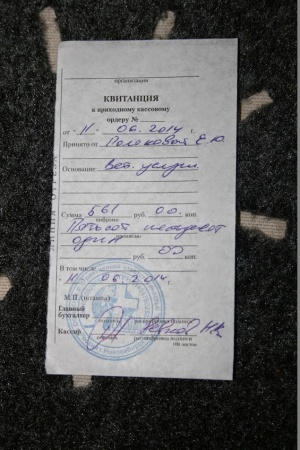 организация
КВИТАНЦИЯ
к приходному кассовому
ордеру №
от "11" 06.2014г
Принято от Ролековой Е.Ю.
Основание: Вет. услуги
Сумма 561 руб. 00. коп.
цифрами
Пятьсот шестьдесят
прописью
один
руб. 00 коп.
В том числе
"11" 06 2014г.
М.П. (штампа)
Главный
бухгалтер
подпись расшифровка подписи
Кассир
подпись расшифровка подписи